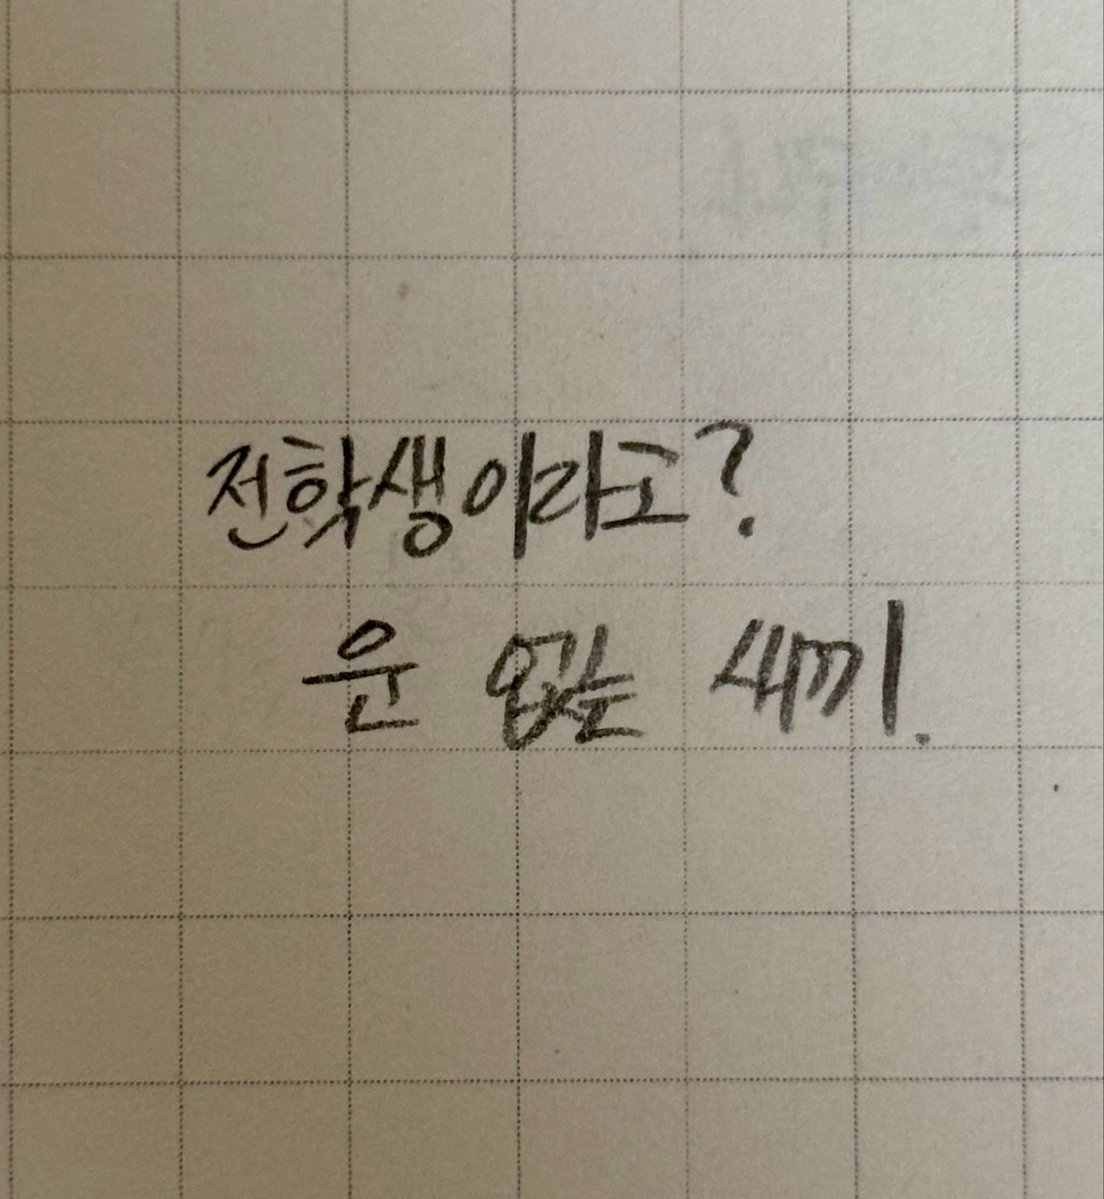 전학생이라고?
운 없는 새끼.